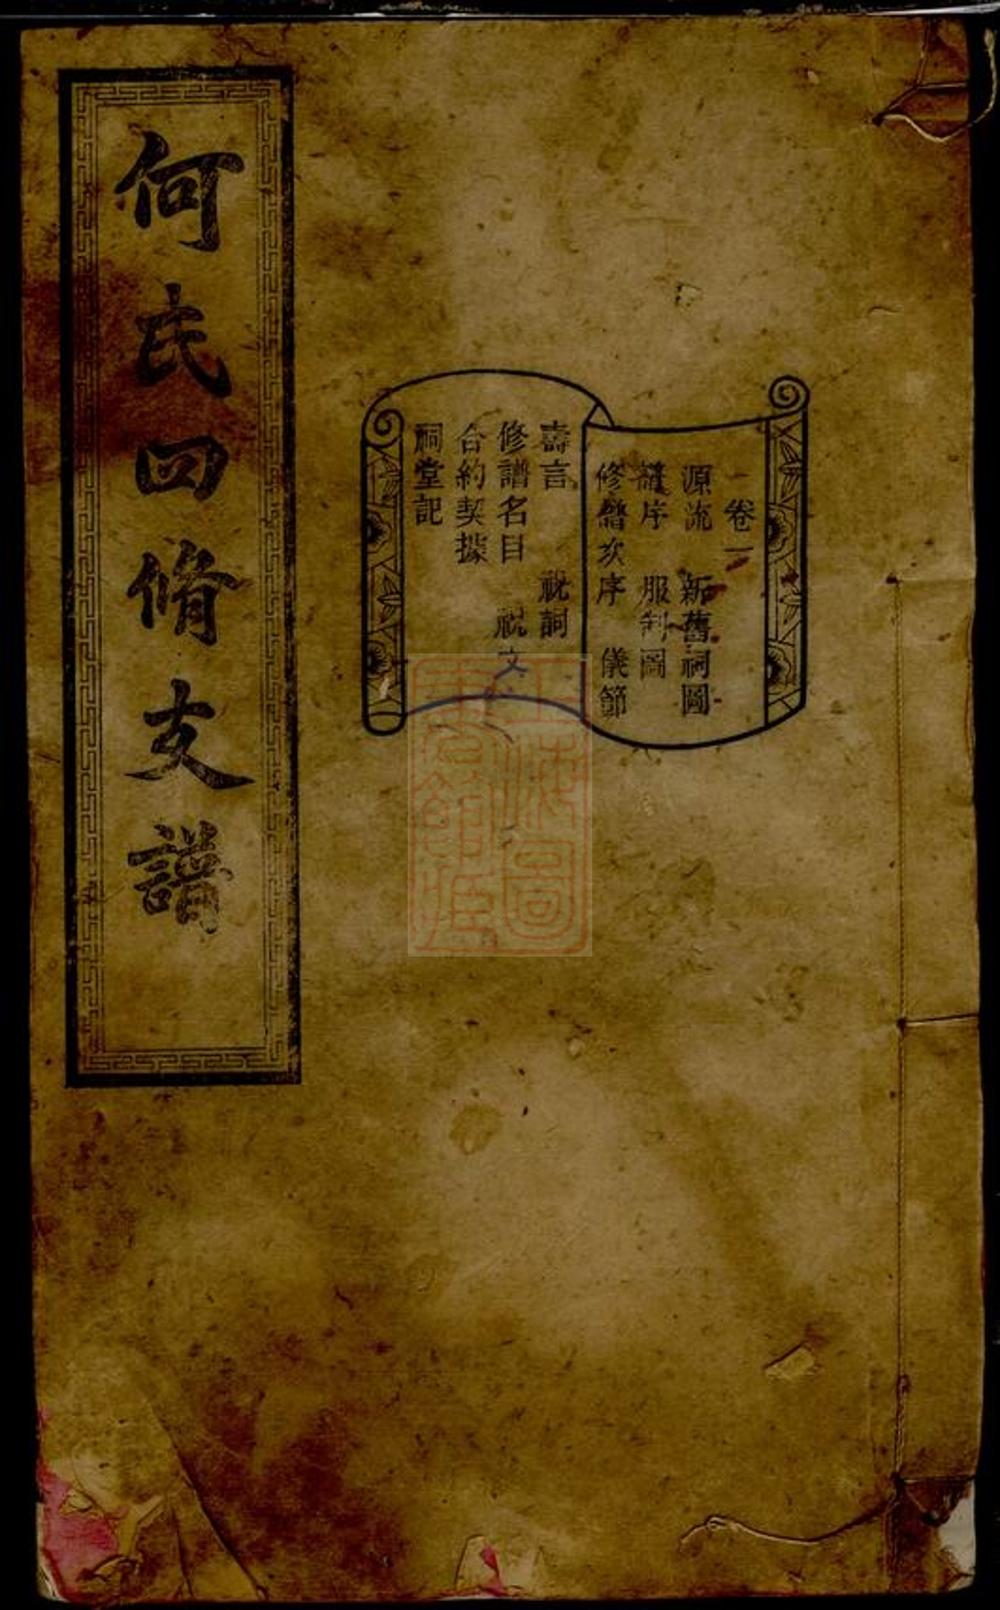 何氏四脩支譜
卷一
源流　新舊祠圖
譜序　服制圖
修譜次序　儀節
壽言　祝詞
修譜名目　祝文
合約契據
祠堂記
上海圖書館藏